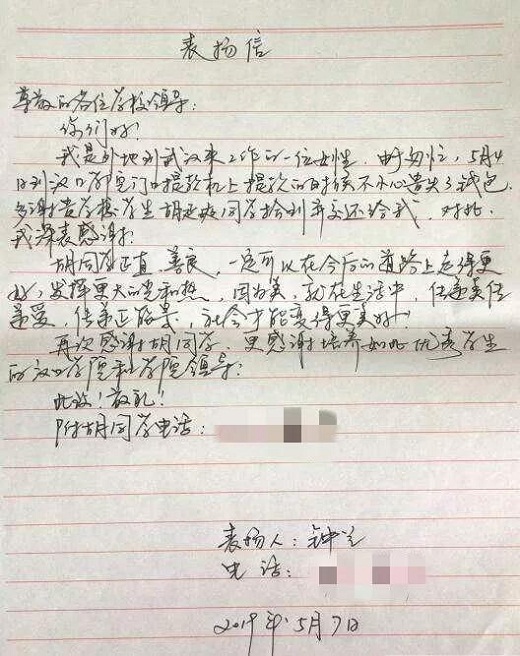 表扬信
尊敬的各位学校领导：
你们好！
我是外地到武汉来工作的一位女性，由于匆忙，5月4
日到汉口学院门口提款机上提款的时候不小心遗失了钱包，
多谢贵学校学生胡同学拾到并交还给我，对此，
我深表感谢！
胡同学正直、善良，一定可以在今后的道路上走得更
好，发挥更大的光和热，因为美，就在生活中，传递美传
递爱，传递正能量，社会才能变得更美好！
再次感谢胡同学，更感谢培养如此优秀学生
的汉口学院和学院领导！
此致！敬礼！
附胡同学电话：
表扬人：钟兰
电话：
2019年5月7日